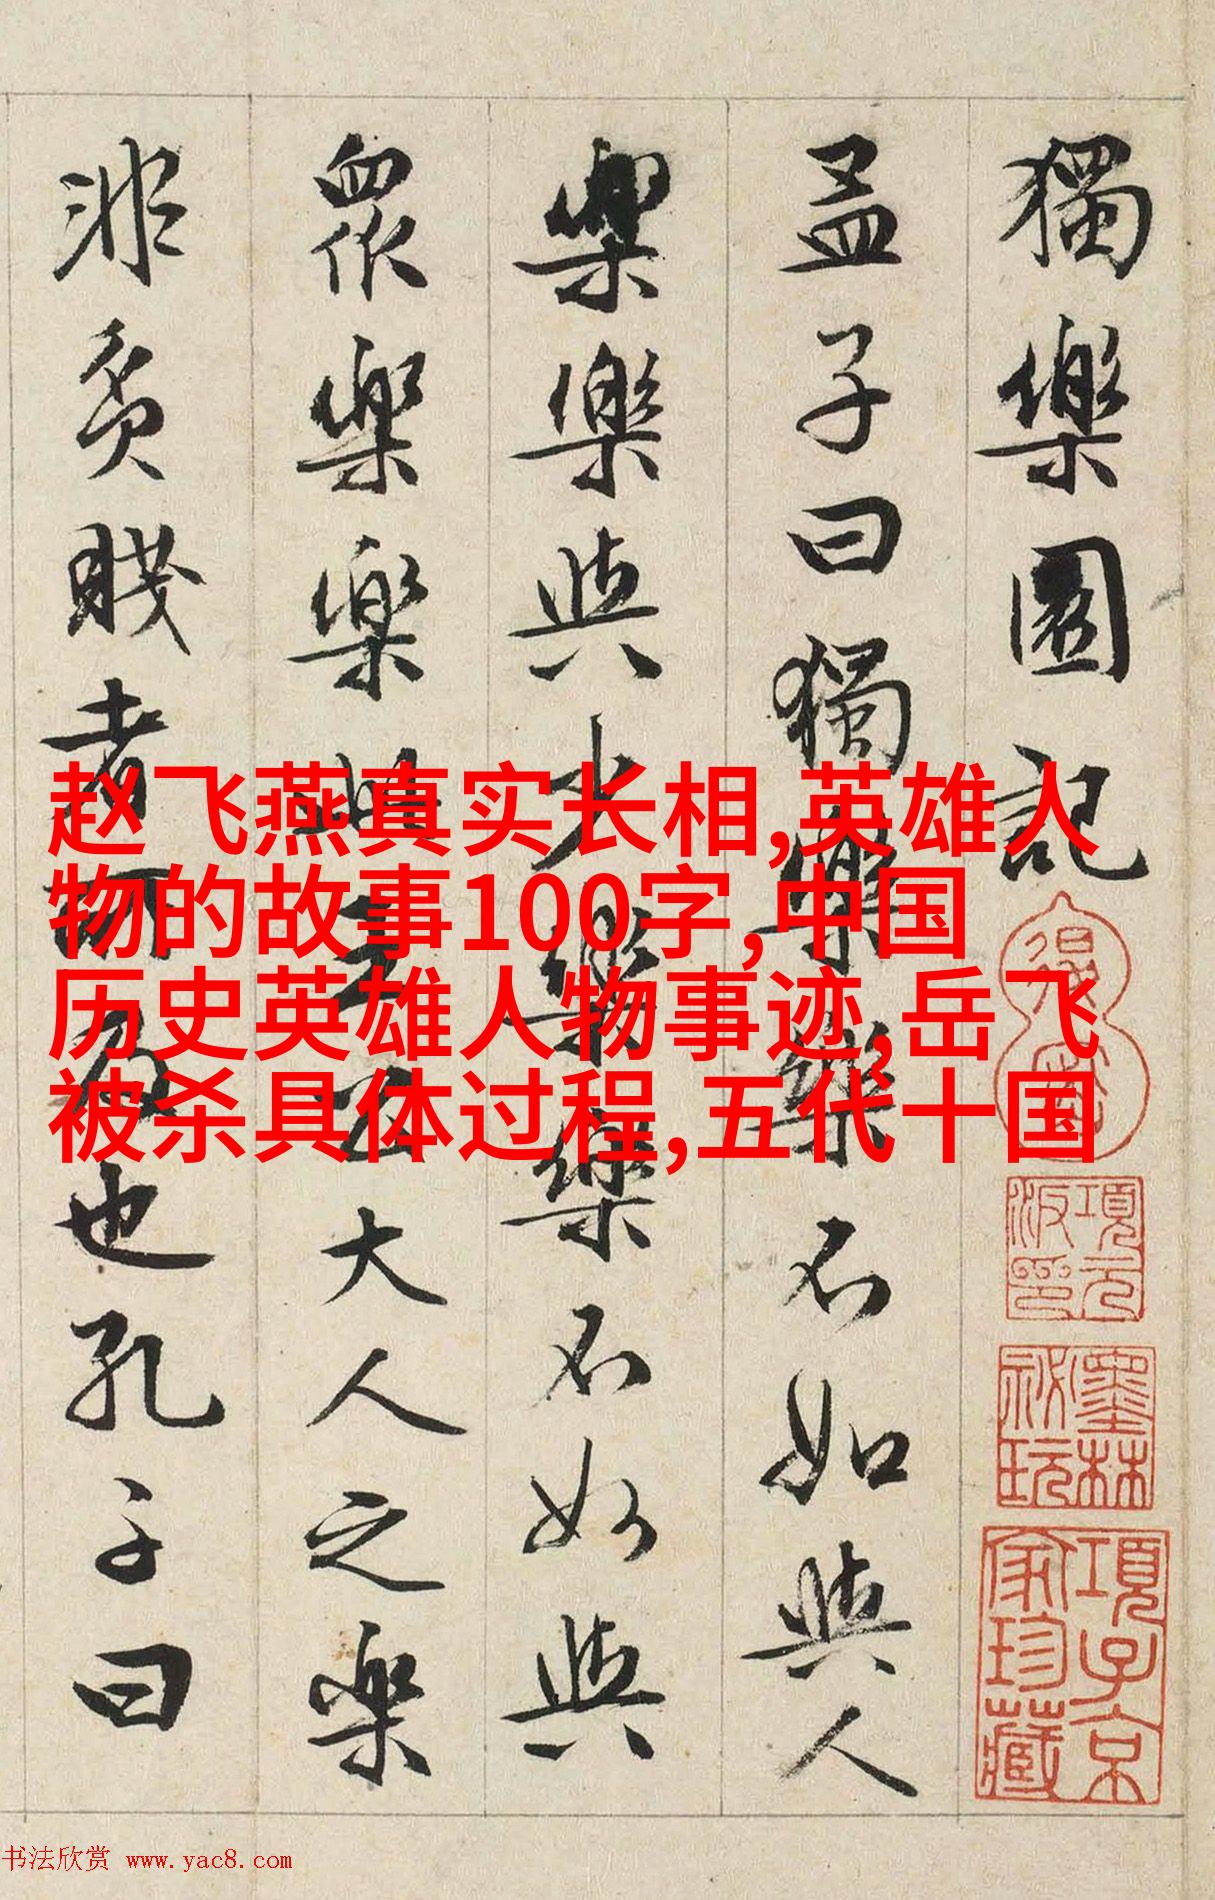 獨樂園記
孟子曰獨樂樂不如與人
樂樂與少樂樂不如與
眾樂樂此王公大人之樂
非貧賤者所及也孔子曰
赵飞燕真实长相,英雄人
物的故事100字,中国
历史英雄人物事迹,岳飞
被杀具体过程,五代十国
項元汴印
墨林祕玩
項子京家珍藏
书法欣赏 www.yac8.com